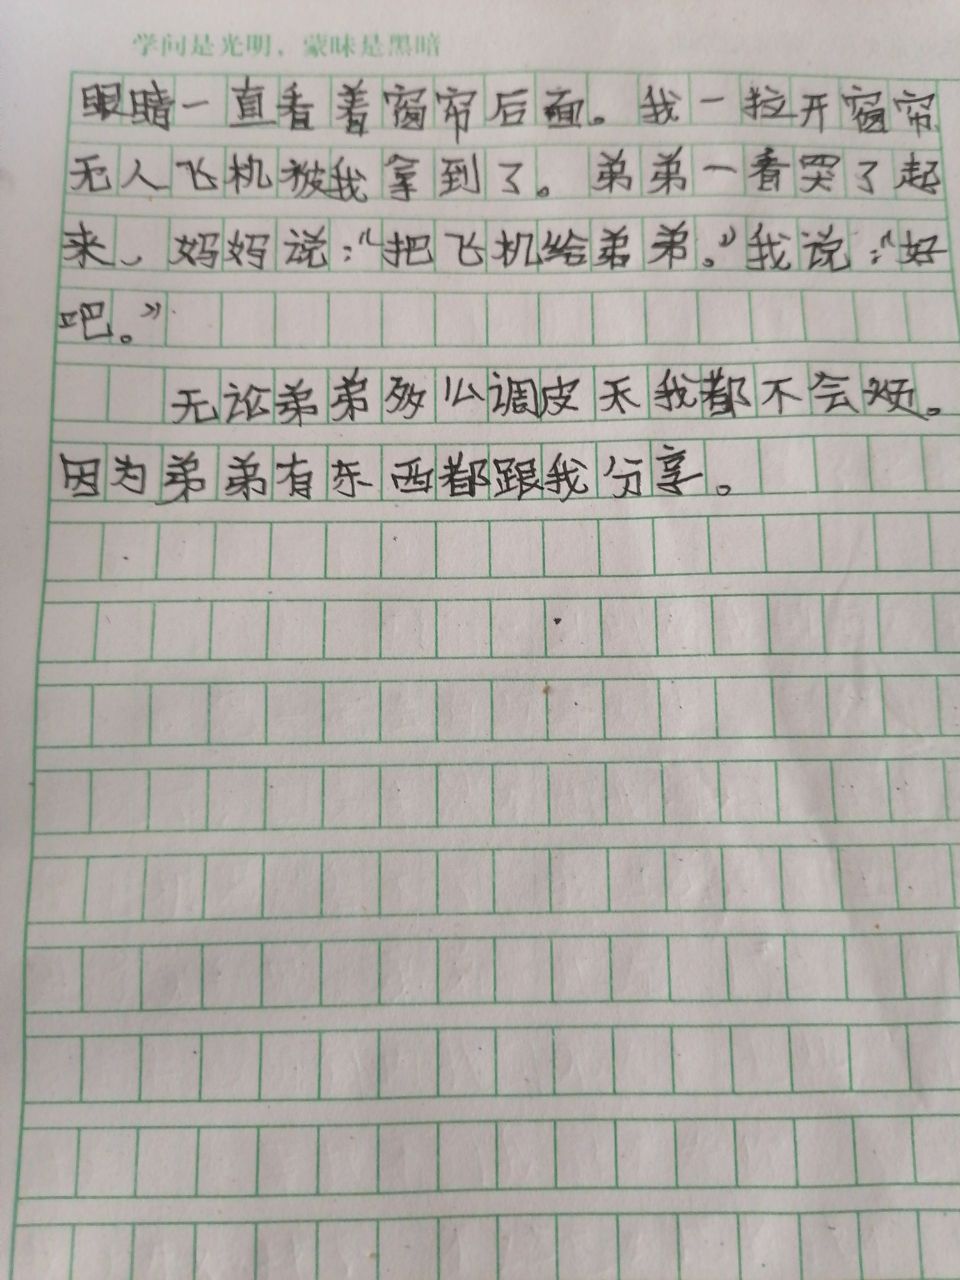 学问是光明，蒙昧是黑暗
眼睛一直看着窗帘后面。我一拉开窗帘
无人飞机被我拿到了。弟弟一看哭了起
来、妈妈说：“把飞机给弟弟。”我说：“好
吧。”
无论弟弟么调皮天我都不会烦。
因为弟弟有东西都跟我分享。